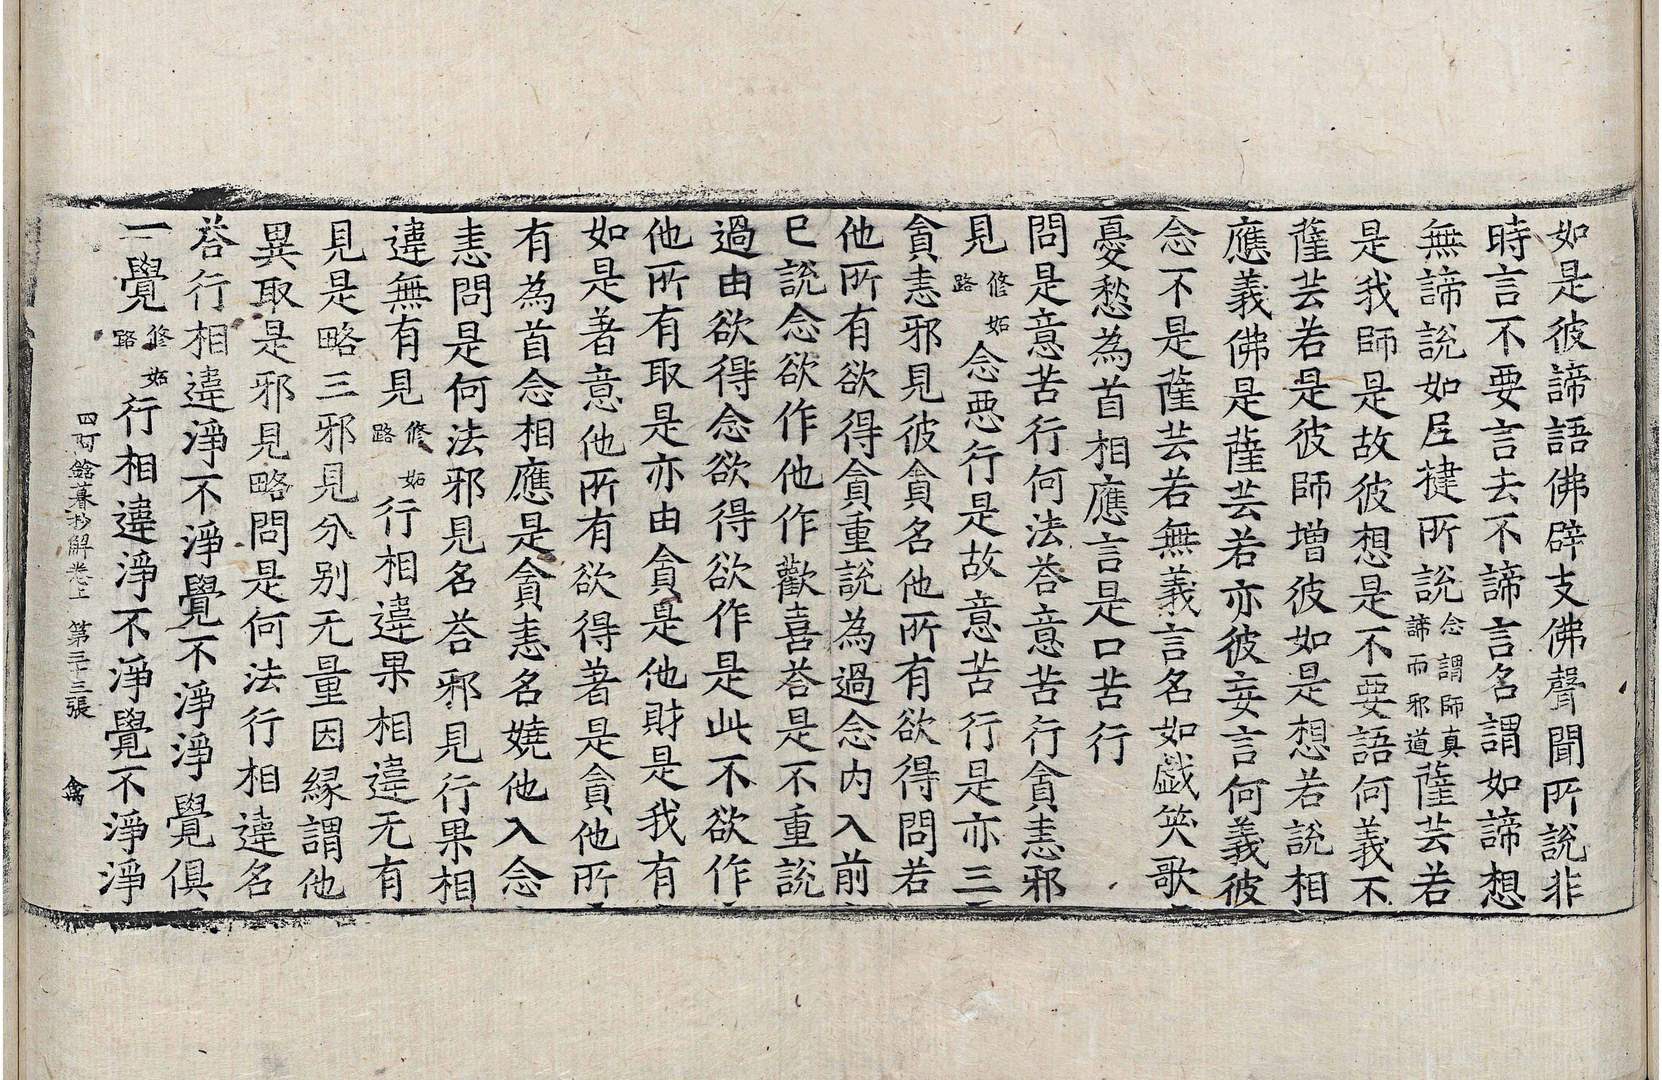 如是彼諦語佛辟支佛聲聞所說非
時言不要言去不諦言名謂如諦想
無諦說如𡰱揵所說念謂師真諦而邪道薩芸若
是我師是故彼想是不要語何義不
薩芸若是彼師增彼如是想若說相
應義佛是薩芸若亦彼妄言何義彼
念不是薩芸若無義言名如戯笑歌
憂愁為首相應言是口苦行
問是意苦行何法荅意苦行貪恚邪
見修妬路念惡行是故意苦行是亦三
貪恚邪見彼貪名他所有欲得問若
他所有欲得貪重說為過念內入前
已說念欲作他作歡喜荅是不重說
過由欲得念欲得欲作是此不欲作
他所有取是亦由貪是他財是我有
如是著意他所有欲得著是貪他所
有為首念相應是貪恚名嬈他入念
恚問是何法邪見名荅邪見行果相
違無有見修妬路行相違果相違无有
見是略三邪見分別无量因緣謂他
異取是邪見略問是何法行相違名
荅行相違淨不淨覺不淨淨覺俱
一覺修妬路行相違淨不淨覺不淨淨
四阿鋡暮抄解卷上　第三十三張　禽